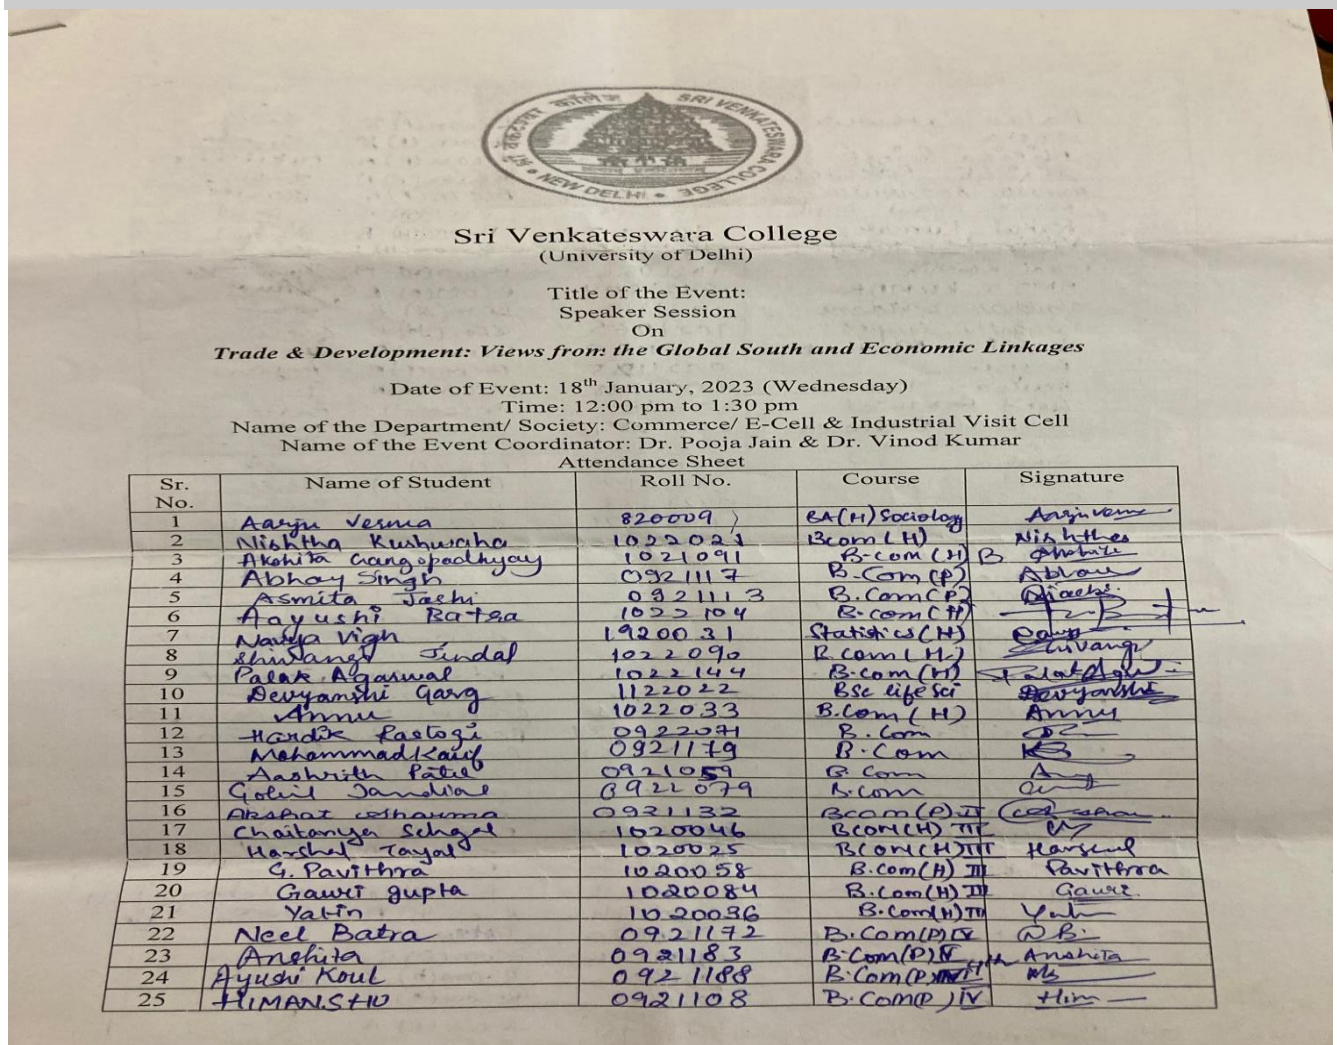 श्री वेंकटेश्वर कॉलेज • SRI VENKATESWARA COLLEGE • NEW DELHI •
Sri Venkateswara College
(University of Delhi)
Title of the Event:
Speaker Session
On
Trade & Development: Views from the Global South and Economic Linkages
Date of Event: 18th January, 2023 (Wednesday)
Time: 12:00 pm to 1:30 pm
Name of the Department/ Society: Commerce/ E-Cell & Industrial Visit Cell
Name of the Event Coordinator: Dr. Pooja Jain & Dr. Vinod Kumar
Attendance Sheet
Sr. No. Name of Student Roll No. Course Signature
1 Aarju Verma 820009 BA(H) Sociology Aarju Verma
2 Nishtha Kushwaha 1022021 Bcom (H) Nishtha
3 Akshita Gangopadhyay 1021091 B-com (H)
4 Abhay Singh 0921117 B-Com (P) Abhay
5 Asmita Joshi 0921113 B.Com (P)
6 Aayushi Batra 1022104 B.com (H)
7 Navya Vigh 1920031 Statistics (H)
8 Shivangi Jindal 1022090 B com (H) Shivangi
9 Palak Agarwal 1022144 B.com (H)
10 Devyanshi Garg 1122022 BSc life Sci Devyanshi
11 Annu 1022033 B.Com (H) Annu
12 Hardik Rastogi 0922071 B. Com
13 Mohammad Kaif 0921179 B.Com
14 Aashrith Patel 0921059 B. Com
15 0922079 B.com
16 Akshat Sharma 0921132 Bcom (P) II
17 Chaitanya Sehgal 1020046 BCOM(H) III
18 Harshul Tayal 1020025 BCOM(H) III Harshul
19 G. Pavithra 1020058 B.Com(H) III Pavithra
20 Gauri gupta 1020084 B.Com(H) III Gauri
21 Yatin 1020036 B.Com(H) III
22 Neel Batra 0921172 B.Com(P) IV N.B.
23 Anshita 0921183 B.Com(P) IV Anshita
24 Ayushi Koul 0921188 B.Com(P)
25 HIMANSHU 0921108 B.Com(P) IV Him